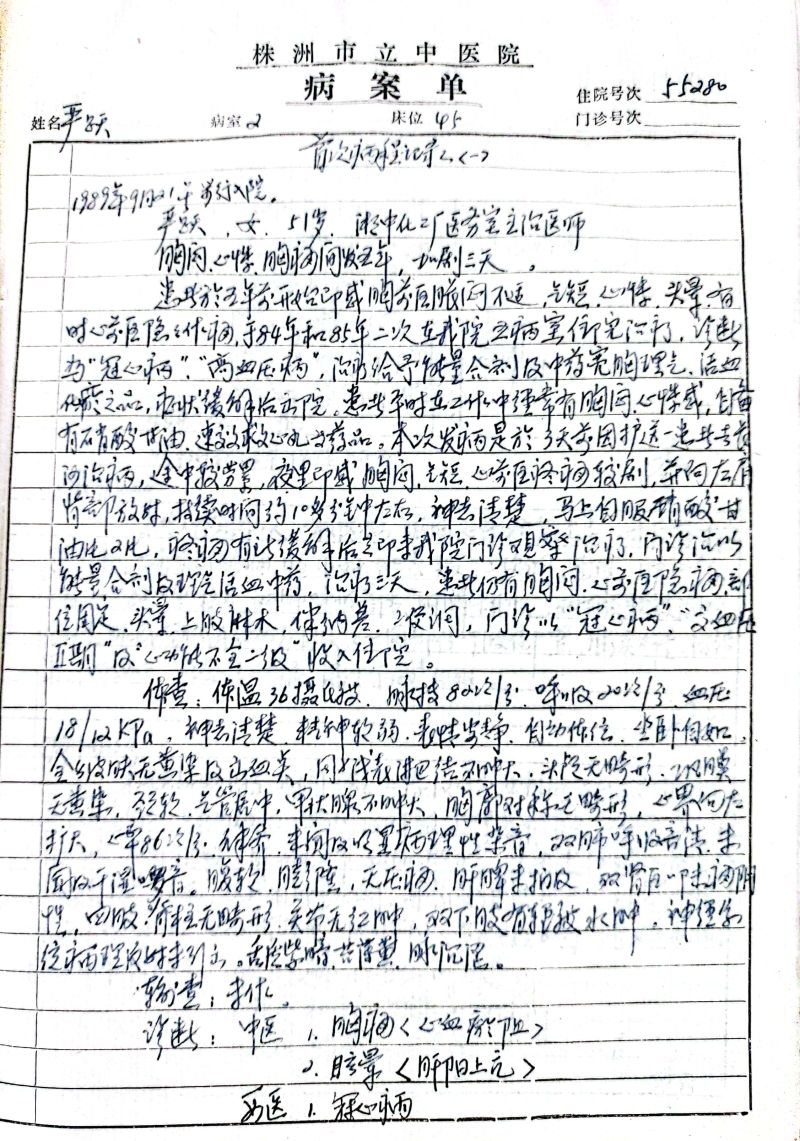 株洲市立中医院
病案单
住院号次 55280
姓名 严跃 病室 2 床位 45 门诊号次
首次病程记录 <一>
1989年9月21号 入院。
严跃,女,51岁,湘中化工厂医务室主治医师
胸闷、心悸、胸痛间发五年,加剧三天。
患者於五年前开始即感胸前区胀闷不适,气短、心悸、头晕,有
时心前区隐隐作痛,于84年和85年二次在我院 病室住院治疗,诊断
为“冠心病”“高血压病”,治疗给予能量合剂及中药宽胸理气、活血
化瘀之品,症状缓解后出院。患者平时在工作中经常有胸闷、心悸感,自备
有硝酸甘油、速效救心丸等药品。本次发病是於3天前因护送一患者去长
沙治病,途中较劳累,夜里即感胸闷、气短、心前区疼痛较剧,并向左肩
背部放射,持续时间约10多分钟左右,神志清楚,马上自服硝酸甘
油片2片,疼痛有些缓解后立即来我院门诊观察治疗,门诊治以
能量合剂及理气活血中药,治疗三天,患者仍有胸闷、心前区隐痛,部
位固定、头晕、上肢麻木,伴纳差,二便调,门诊以“冠心病”、“高血压
II期”及“心功能不全二级”收入住院。
体查:体温36摄氏度 脉搏82次/分 呼吸20次/分 血压
18/12KPa,神志清楚,精神软弱,表情安静,自动体位,坐卧自如,
全身皮肤无黄染及出血点,周身浅表淋巴结不肿大,头颅无畸形,巩膜
无黄染,颈软,气管居中,甲状腺不肿大,胸廓对称无畸形,心界向左
扩大,心率86次/分,律齐,未闻及明显病理性杂音,双肺呼吸音清,未
闻及干湿啰音。腹软,膨隆,无压痛,肝脾未扪及,双肾区叩痛阴
性,四肢、脊柱无畸形,关节无红肿,双下肢有轻度水肿,神经系
统病理反射未引出。舌质紫暗,苔薄黄,脉沉涩。
辅查:未作。
诊断:中医 1. 胸痛<心血瘀阻>
2. 眩晕<肝阳上亢>
西医 1. 冠心病